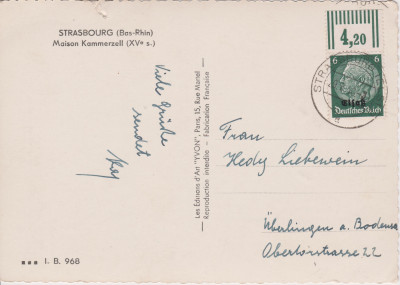 STRASBOURG (Bas-Rhin)
Maison Kammerzell (XVe s.)
4,20
6 6
Elsaß
Deutsches Reich
STRA
Viele Grüße
sendet
Les Editions d'Art "YVON", Paris, 15, Rue Martel
Reproduction interdite - Fabrication Française
Frau
Hedy Liebewein
Überlingen a. Bodensee
Obertorstrasse 22
I. B. 968